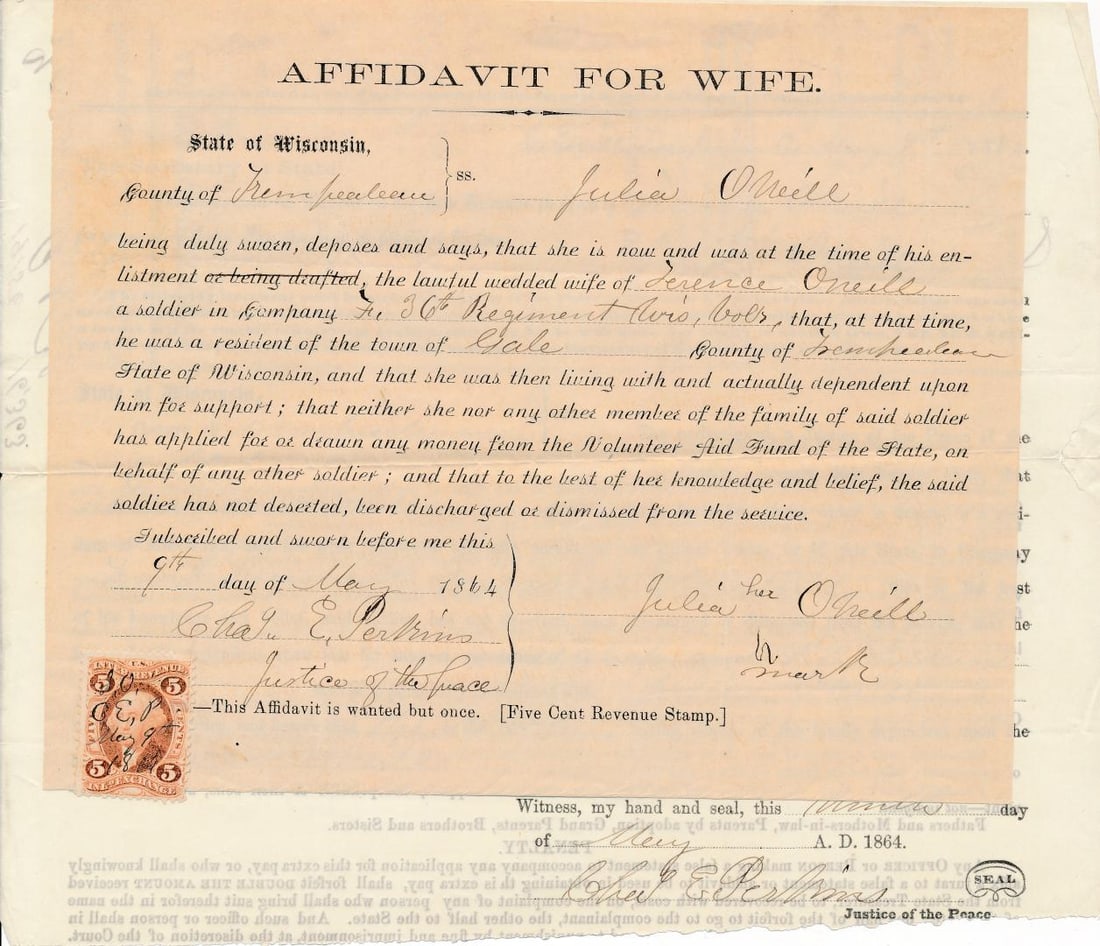 AFFIDAVIT FOR WIFE.
State of Wisconsin,
County of Trempealeau } ss. Julia ONeill
being duly sworn, deposes and says, that she is now and was at the time of his en-
listment or being drafted, the lawful wedded wife of Terence Oneill
a soldier in Company F. 36th Regiment Wis, Vols, that, at that time,
he was a resident of the town of Gale County of Trempealeau
State of Wisconsin, and that she was then living with and actually dependent upon
him for support; that neither she nor any other member of the family of said soldier
has applied for or drawn any money from the Volunteer Aid Fund of the State, on
behalf of any other soldier; and that to the best of her knowledge and belief, the said
soldier has not deserted, been discharged or dismissed from the service.
Subscribed and sworn before me this
9th day of May 1864
Chas. E. Perkins
Justice of the peace
Julia her ONeill
mark
5 5
C E, P
May 9th
5 5
INL. EXCHANGE
—This Affidavit is wanted but once. [Five Cent Revenue Stamp.]
Witness, my hand and seal, this day
of May A. D. 1864.
Chas E Perkins
SEAL
Justice of the Peace
Fathers and Mothers-in-law, Parents by adoption, Grand Parents, Brothers and Sisters.
PENALTY.